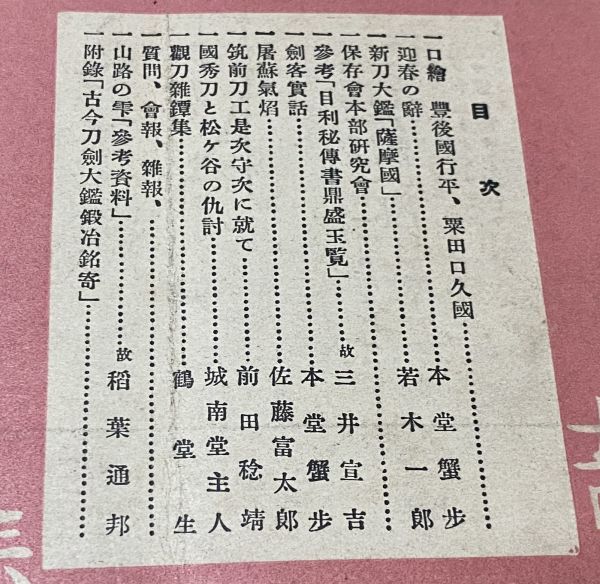 目次
一 口繪 豐後國行平、粟田口久國……………
一 迎春の辭……………本堂蟹步
一 新刀大鑑「薩摩國」……………若木一郎
一 保存會本部研究會……………
一 參考「目利秘傳書鼎盛玉覽」……………故 三井宣吉
一 劍客實話……………本堂蟹步
一 屠蘇氣焰……………佐藤富太郎
一 筑前刀工是次守次に就て……………前田稔靖
一 國秀刀と松ヶ谷の仇討……………城南堂主人
一 觀刀雜鐔集……………鶴堂生
一 質問、會報、雜報、……………
一 山路の雫「參考資料」……………故 稻葉通邦
一 附錄「古今刀劍大鑑鍛冶銘寄」……………